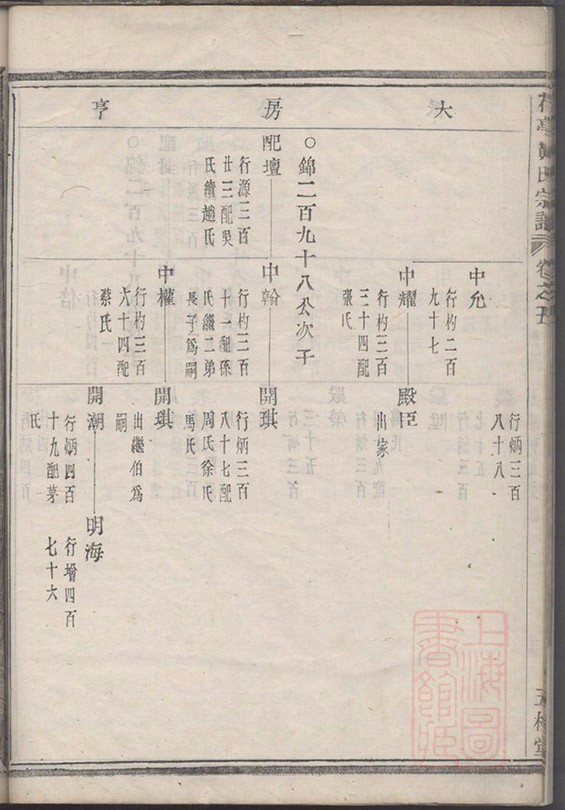 大房亨
行炳三百
八十八
中允
行杓二百
九十七
中耀
行杓三百
三十四配
張氏
殿臣
出家
○錦二百九十八公次子
配壇
行源三百
廿三配吳
氏續趙氏
中翰
行杓三百
十一配孫
氏繼二弟
長子爲嗣
開琪
行炳三百
八十七配
周氏徐氏
馬氏
中權
行杓三百
六十四配
蔡氏
開琪
出繼伯爲
嗣
開潮
行炳四百
十九配茅
氏
明海
行增四百
七十六
氏宗譜
卷之五
上海圖書館藏